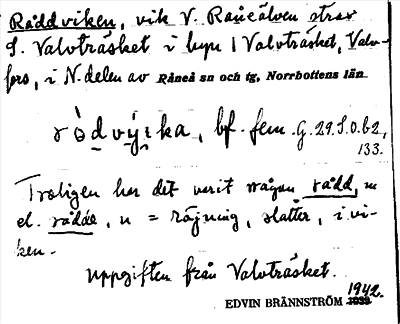 Råddviken, vik V. Råneälven strax
S. Valvträsket i byn 1 Valvträsket, Valv-
fors, i N. delen av Råneå sn och tg, Norrbottens län
bf. fem. G. 29. S. 0. b2,
133.
Troligen har det varit någon rådd, m
el. rådde, n = röjning, slåtter, i vi-
ken.
Uppgiften från Valvträsket.
EDVIN BRÄNNSTRÖM 1942.